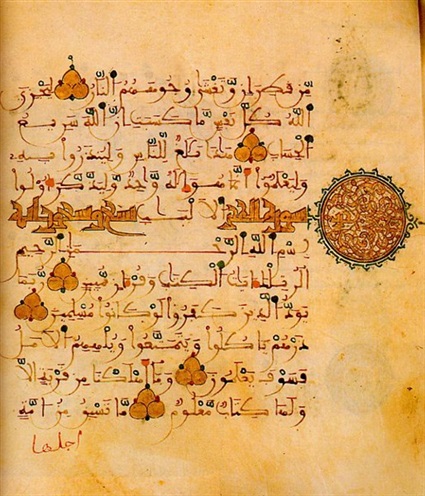 من قطران وتغشى وجوههم النار ليجزي
الله كل نفس ما كسبت إن الله سريع
الحساب هذا بلغ للناس ولينذروا به
وليعلموا أنما هو إله وحد وليذكر أولوا
سورة الحجر الألبب تسع وتسعون آية
بسم الله الرحمن الرحيم
الر تلك آيت الكتب وقرآن مبين ربما
يود الذين كفروا لو كانوا مسلمين
ذرهم يأكلوا ويتمتعوا ويلههم الأمل
فسوف يعلمون وما أهلكنا من قرية إلا
ولها كتاب معلوم ما تسبق من أمة
أجلها